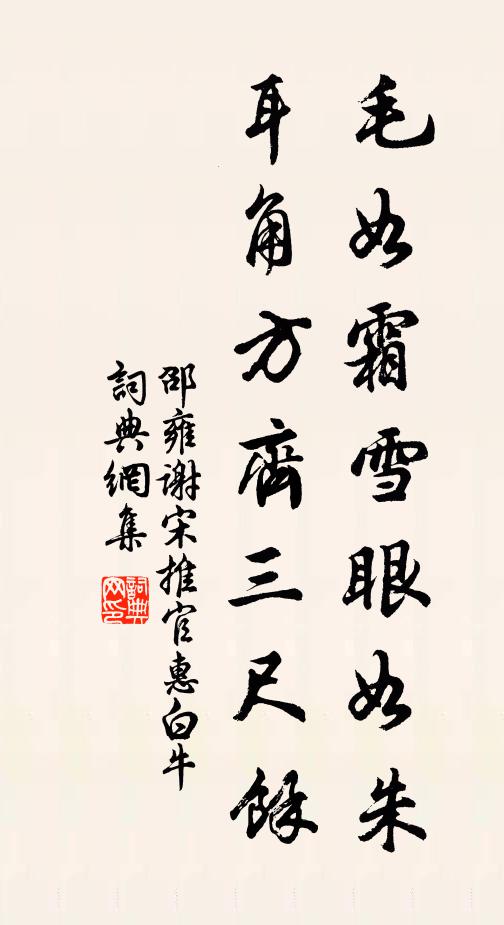 毛如霜雪眼如朱
耳角方齊三尺餘
邵雍謝宋推官惠白牛
詞典網集
詞典網印